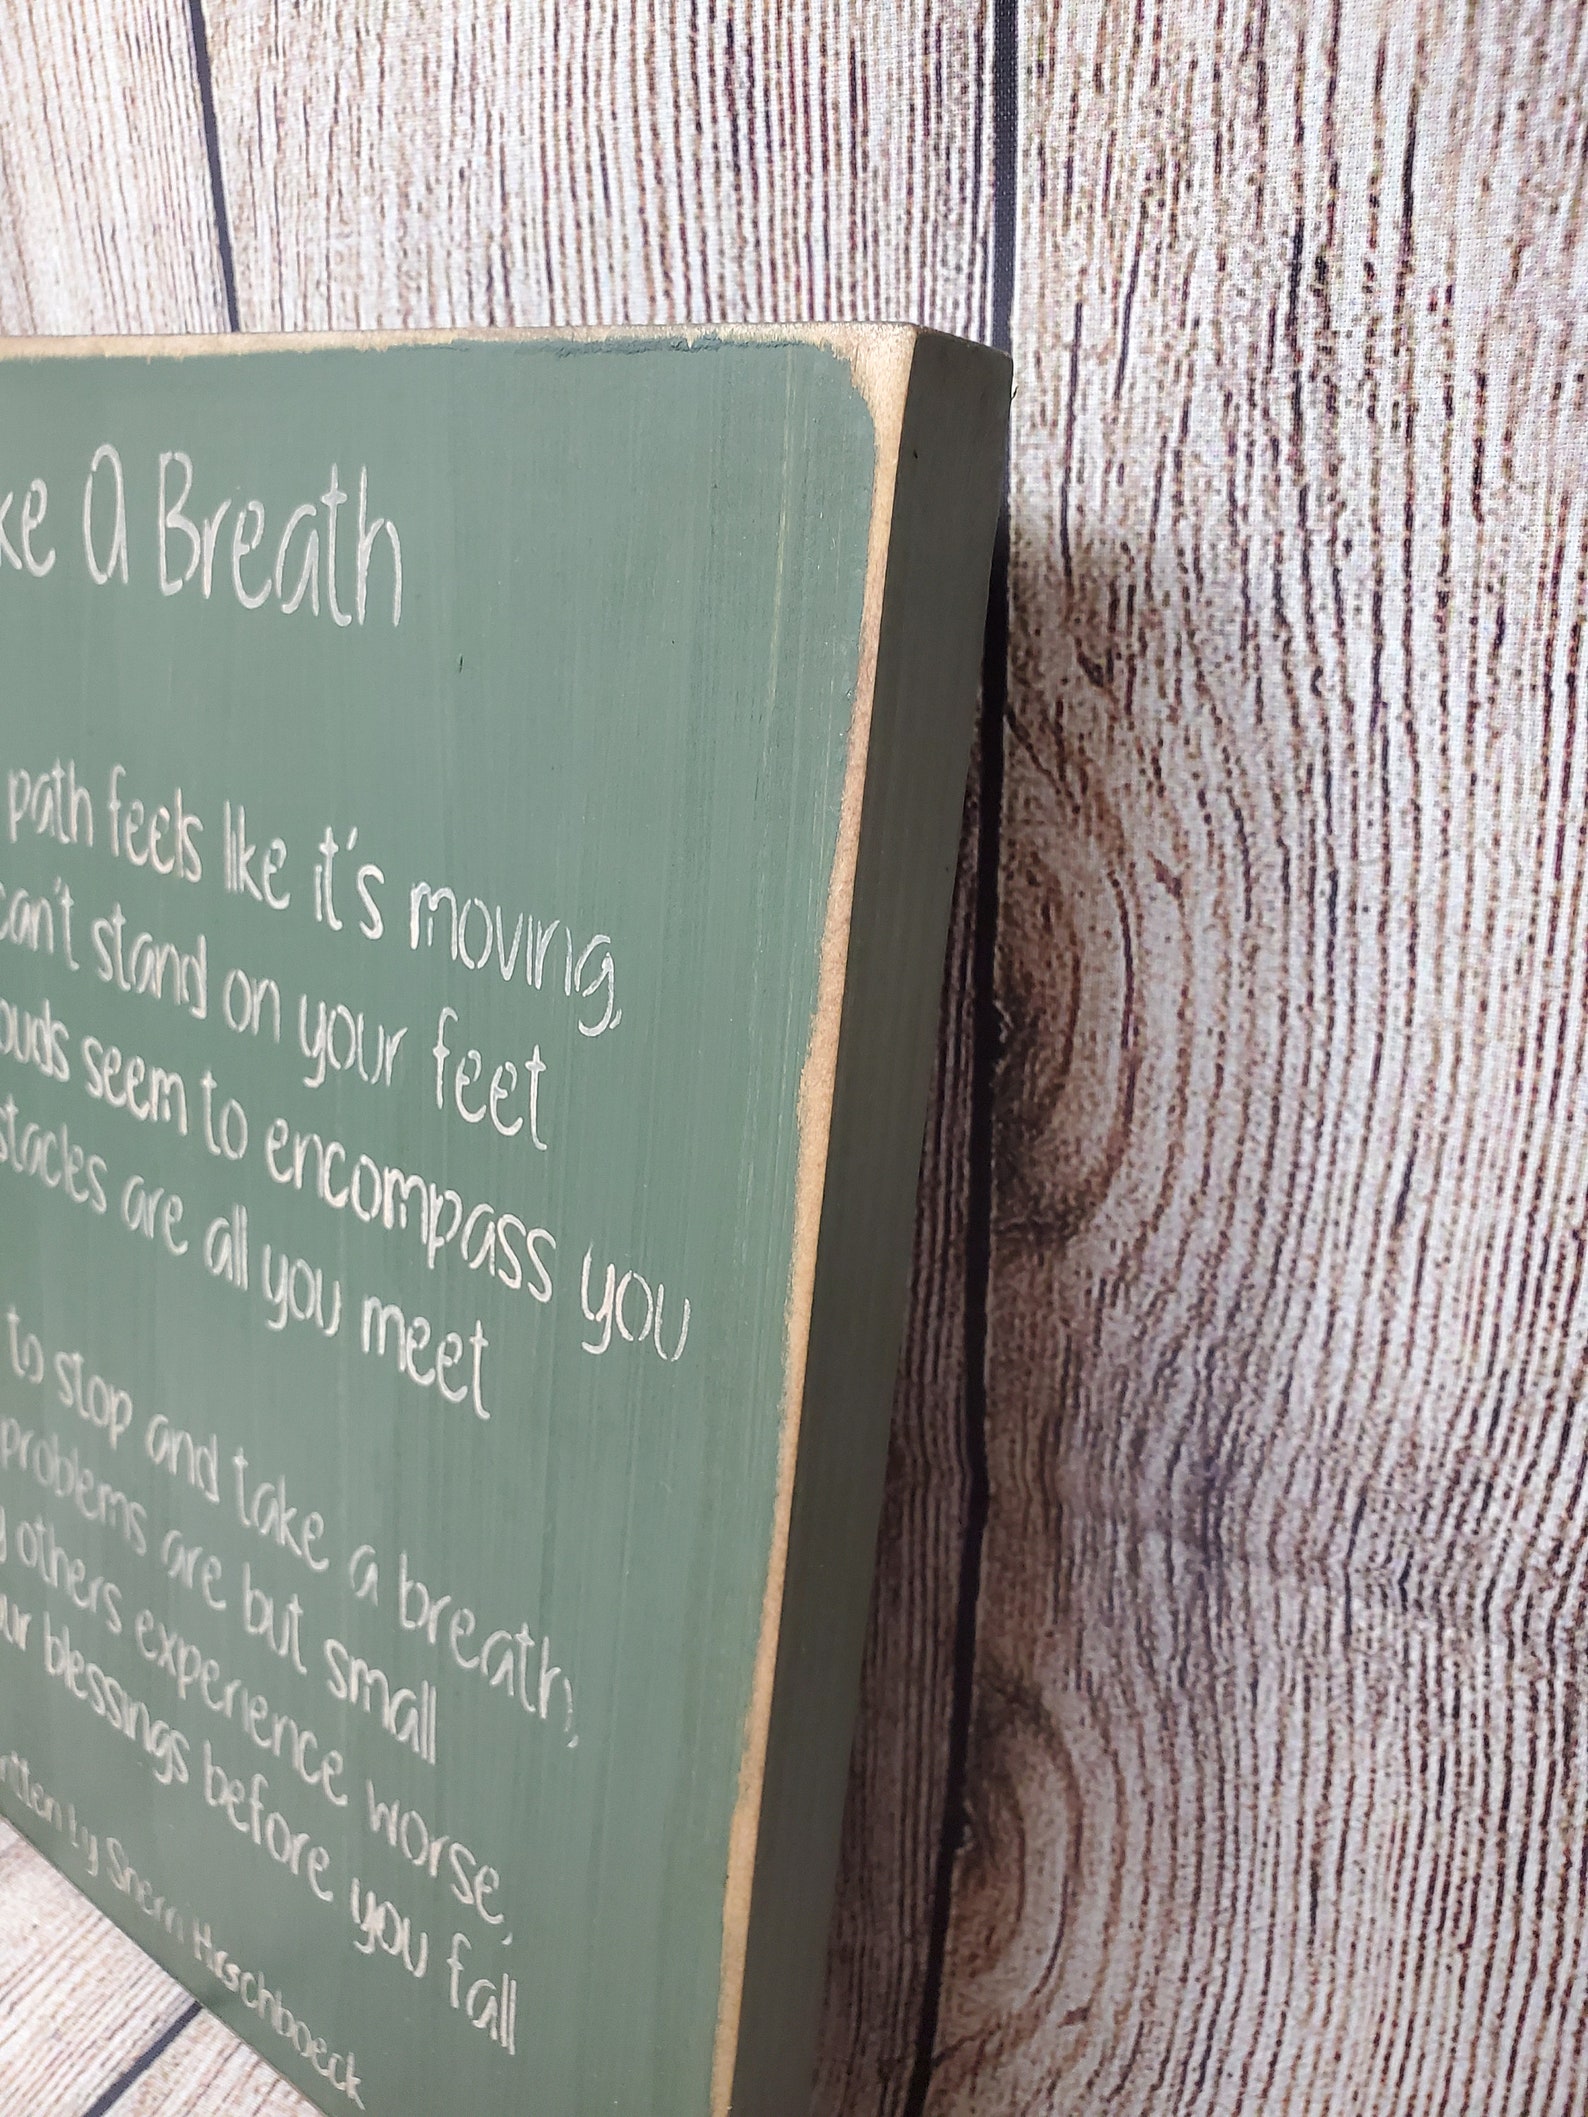 A Breath
path feels like it's moving,
can't stand on your feet
seem to encompass you
are all you meet
to stop and take a breath,
problems are but small
others experience worse,
blessings before you fall
by Sherri Hirschboeck